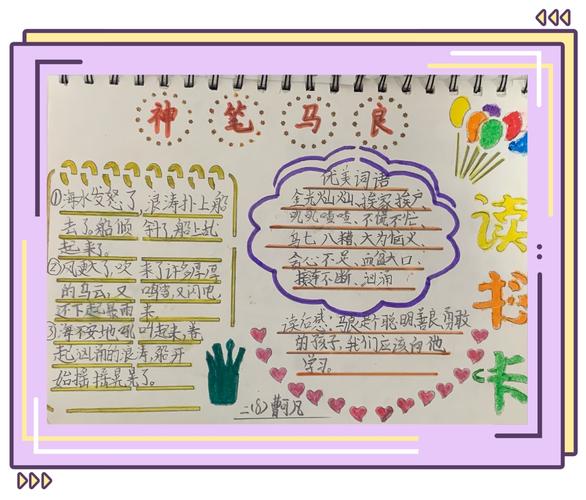 神笔马良
读书卡
①海水发怒了,浪涛扑上船
去了。船倾斜了,船上乱
起来了。
②风更大了,吹来了许多厚厚
的乌云,又鸣雷,又闪电,
还下起暴雨来。
③海不安地吼叫起来,卷
起汹涌的浪涛,船开
始摇摇晃晃了。
优美词语
金光灿灿、挨家挨户
叽叽喳喳、不慌不忙、
乱七八糟、大为恼火、
贪心不足、血盆大口、
接连不断、汹涌
读后感:马良是个聪明善良勇敢
的孩子,我们应该向他
学习。
二(8)曹可凡